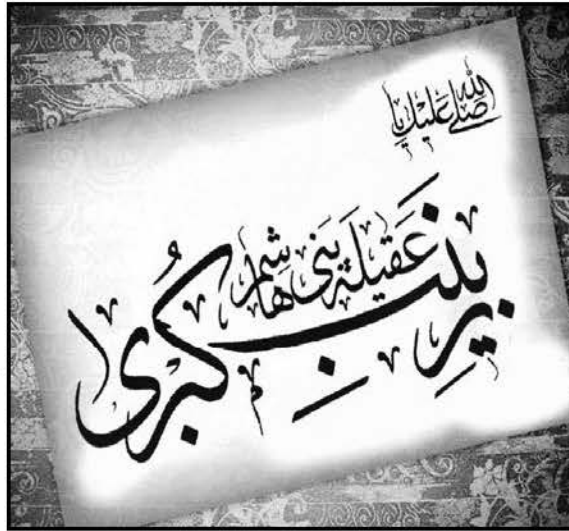 صلی الله علیك یا
عقیلة بنی هاشم
زینب کبری